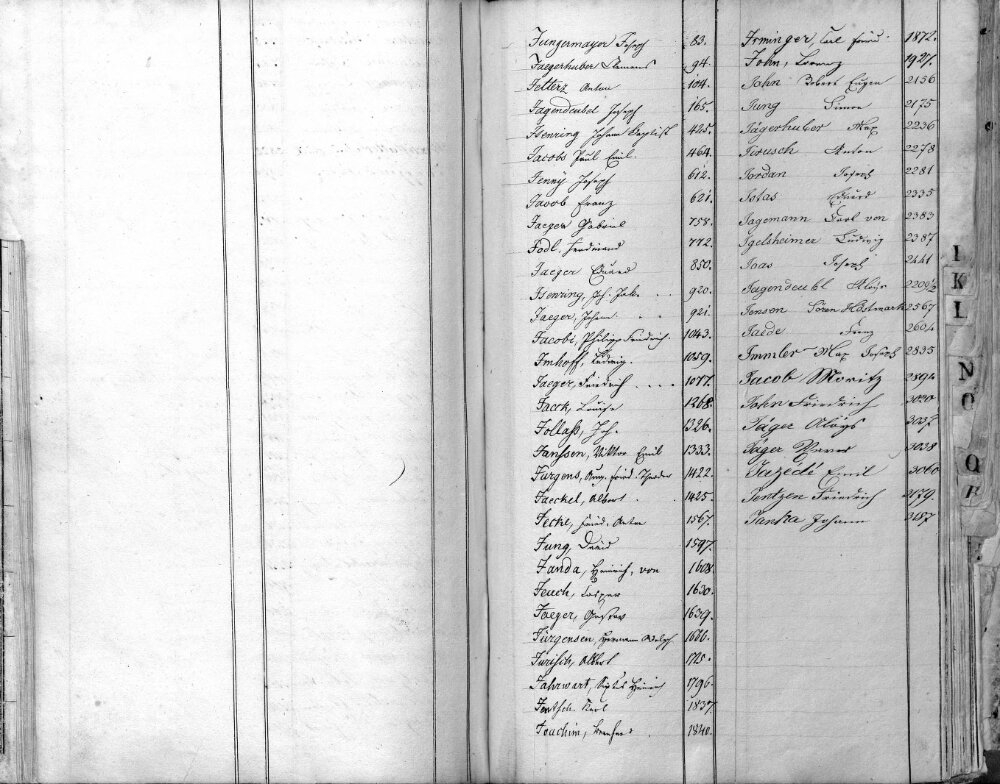 Jungermayer Joseph 83.
Jaegerhuber Clemens 94.
Jetters Anton 104.
Jagendeubel Joseph 165.
Isenring Johann Baptist 425.
Jacobs Paul Emil. 464.
Jenny Joseph 612.
Jacob Franz 621.
Jaeger Gabriel 758.
Jodl, Ferdinand 772.
Jaeger Eduard 850.
Isenring, Joh. Jak. 920.
Jaeger, Johann 921.
Jacobi, Philipp Friedrich. 1043.
Imhoff, Ludwig. 1059.
Jaeger, Friedrich 1077.
Jaeck, Louise 1268.
Jollaß, Joh. 1326.
Janssen, Viktor Emil 1333.
Jurgens, Aug. Fried. Theodor 1422.
Jaeckel, Albert 1425.
Jecke, Fried. Anton 1567.
Jung, David 1597.
Janda, Heinrich, von 1608.
Jeuch, Caspar 1630.
Jaeger, Gustav 1639.
Jürgensen, Hermann Adolph 1686.
Albert 1725.
Jahrwart, Heinrich 1796.
Jentsch. Karl 1837.
Joachim, 1840.
Irminger, Carl Fried. 1872.
John, Lorenz 1927.
John Robert Eugen 2156
Jung Simon 2175
Jägerhuber Max 2236
Anton 2278
Jordan Joseph 2281
Istas Eduard 2335
Jagemann Karl von 2383
Igelsheimer Ludwig 2387
Joas Joseph 2441
Jagendeubl Alois
Jensen Sören Hostmark 2567
Jaede Franz 2604
Immler Max Joseph 2835
Jacob Moritz 2894
John Friedrich
Jäger Aloys 3037
Jäger 3038
Emil 3060
Jentzen Friedrich 3179.
Janka Johann 3187
I
K
L
N
O
Q
R